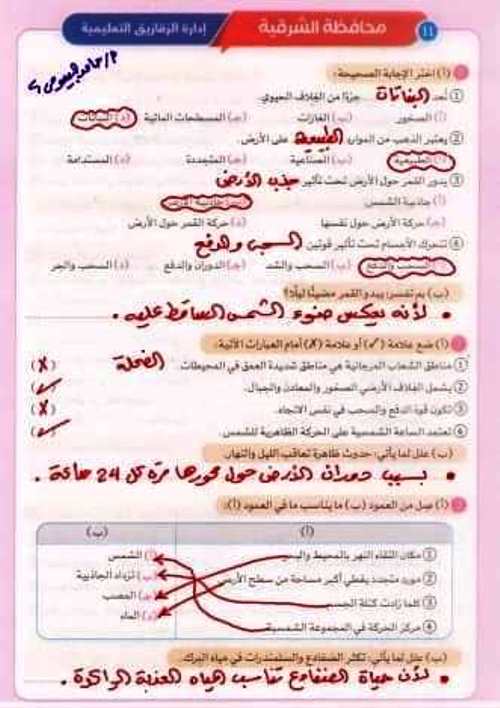 11 محافظة الشرقية إدارة الزقازيق التعليمية
(أ) اختر الإجابة الصحيحة:
① تُعد النباتات جزءًا من الغلاف الحيوي.
(أ) الصخور (ب) الغازات (جـ) المسطحات المائية (د) النباتات
② يعتبر الذهب من الموارد الطبيعية على الأرض.
(أ) الطبيعية (ب) الصناعية (جـ) المتجددة (د) المستدامة
③ يدور القمر حول الأرض تحت تأثير جذب الأرض
(أ) جاذبية الشمس (ب) جاذبية الأرض
(جـ) حركة الأرض حول نفسها (د) حركة القمر حول الأرض
④ تتحرك الأجسام تحت تأثير قوتين السحب والدفع
(أ) السحب والدفع (ب) السحب والشد (جـ) الدوران والدفع (د) السحب والجر
(ب) بم تفسر: يبدو القمر مضيئًا ليلًا؟
• لأنه يعكس ضوء الشمس الساقط عليه.
(أ) ضع علامة (✓) أو علامة (✗) أمام العبارات الآتية:
① مناطق الشعاب المرجانية هي مناطق شديدة العمق في المحيطات. الضحلة (✗)
② يشمل الغلاف الأرضي الصخور والمعادن والجبال. (✓)
③ تكون قوة الدفع والسحب في نفس الاتجاه. (✗)
④ تعتمد الساعة الشمسية على الحركة الظاهرية للشمس. (✓)
(ب) علل لما يأتي: حدوث ظاهرة تعاقب الليل والنهار.
• بسبب دوران الأرض حول محورها مرة كل 24 ساعة.
(أ) صل من العمود (ب) ما يناسب ما في العمود (أ):
(أ) (ب)
① مكان التقاء النهر بالمحيط والبحر (أ) الشمس
② مورد متجدد يغطي أكبر مساحة من سطح الأرض (ب) تزداد الجاذبية
③ كلما زادت كتلة الجسم (جـ) المصب
④ مركز الحركة في المجموعة الشمسية (د) الماء
(ب) علل لما يأتي: تكثر الضفادع والسلمندرات في مياه البرك.
• لأن حياة الضفادع تناسب المياه العذبة الراكدة.